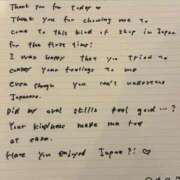 Thank you for today ♡
Thank you for choosing me to
come to this kind of shop in Japan
for the first time!
I was happy that you tried to
convey your feelings to me
even though you can't understand
Japanese.
Did my oral skills feel good ...?
Your kindness made me feel
at ease.
Have you enjoyed Japan?! ♡